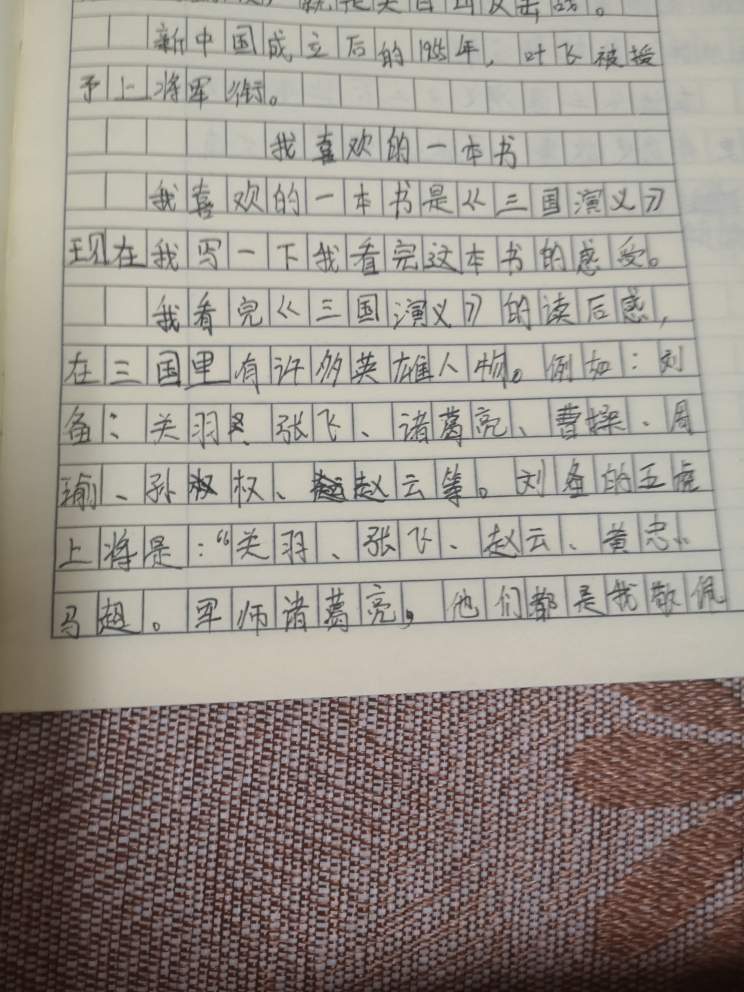 就是关
新中国成立后的1955年，叶飞被授
予上将军衔。
我喜欢的一本书
我喜欢的一本书是《三国演义》
现在我写一下我看完这本书的感受。
我看完《三国演义》的读后感，
在三国里有许多英雄人物。例如：刘
备：关羽、张飞、诸葛亮、曹操、周
瑜、孙权、赵云等。刘备的五虎
上将是：“关羽、张飞、赵云、黄忠、
马超。军师诸葛亮，他们都是我敬佩